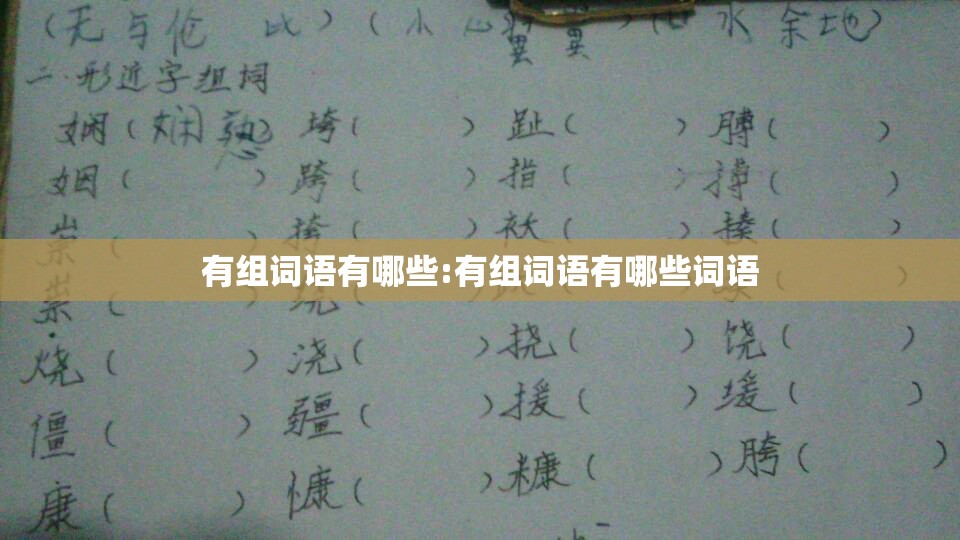 (无与伦比)(小心翼翼)(水余地)
二.形近字组词
娴(娴熟)垮( )趾( )膊( )
姻( )跨( )指( )搏( )
崇( )挎( )袄( )揍( )
有组词语有哪些:有组词语有哪些词语
祟( )
烧( )浇( )挠( )饶( )
僵( )疆( )援( )缓( )
康( )慷( )糠( )胯( )